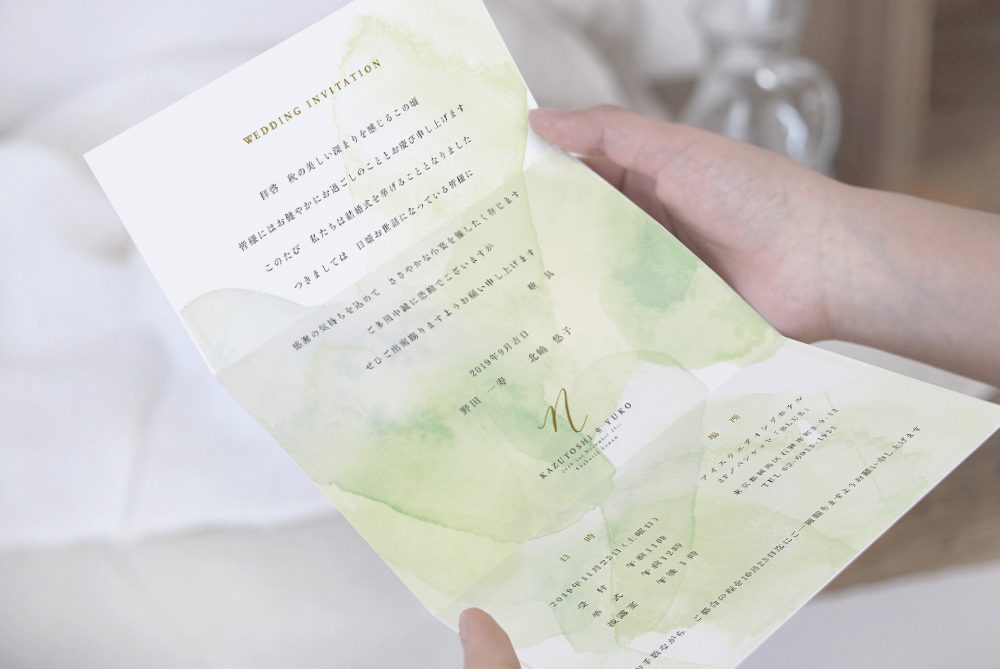 WEDDING INVITATION
拝啓 秋の美しい深まりを感じるこの頃
皆様にはお健やかにお過ごしのこととお慶び申し上げます
このたび 私たちは結婚式を挙げることとなりました
つきましては 日頃お世話になっている皆様に
感謝の気持ちを込めて ささやかな小宴を催したく存じます
ご多用中誠に恐縮でございますが
ぜひご出席賜りますようお願い申し上げます
敬具
2019年9月吉日
野田 一寿 北嶋 悠子
n
KAZUTOSHI & YUKO
日 時
2019年11月23日(土曜日)
受 付 午前11時
挙 式 午前12時
披露宴 午後1時
場 所
アイスウエディングホテル
2F/バンケット(BLUE)
TEL 03-6915-1955
お手数ながら ご都合の程を10月23日迄にご一報賜りますようお願い申し上げます